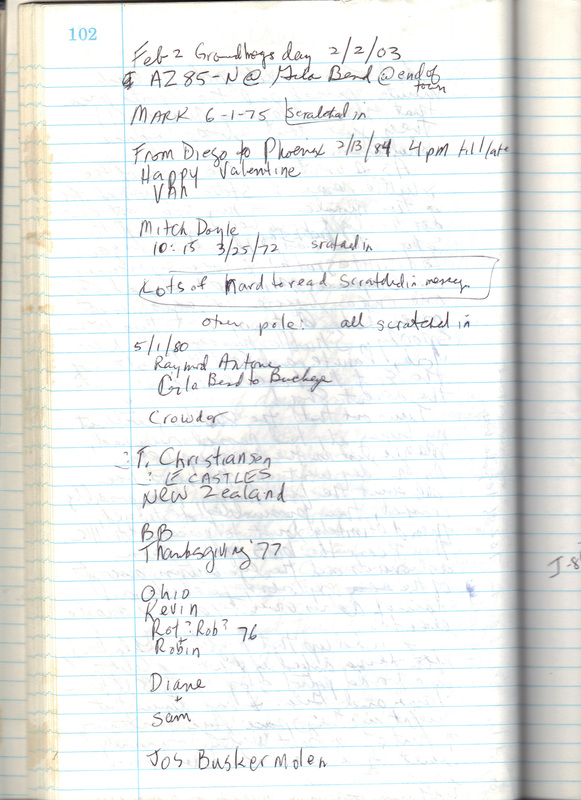 102
Feb 2 Groundhogs day 2/2/03
AZ 85-N @ Gila Bend @ end of
town
MARK 6-1-75 scratched in
From Diego to Phoenix 2/13/84 4 pm till late
Happy Valentine
VAN
Mitch Doyle
10:15 3/25/72 scratched in
Lots of hard to read scratched in messages
other pole: all scratched in
5/1/80
Raymond Antone
Gila Bend to Buckeye
Crowder
T. Christiansen
E CASTLES
New Zealand
BB
Thanksgiving '77
Ohio
Kevin
Rot? Rob? 76
+
Robin
Diane
+
Sam
Jos Buskermolen
J-8